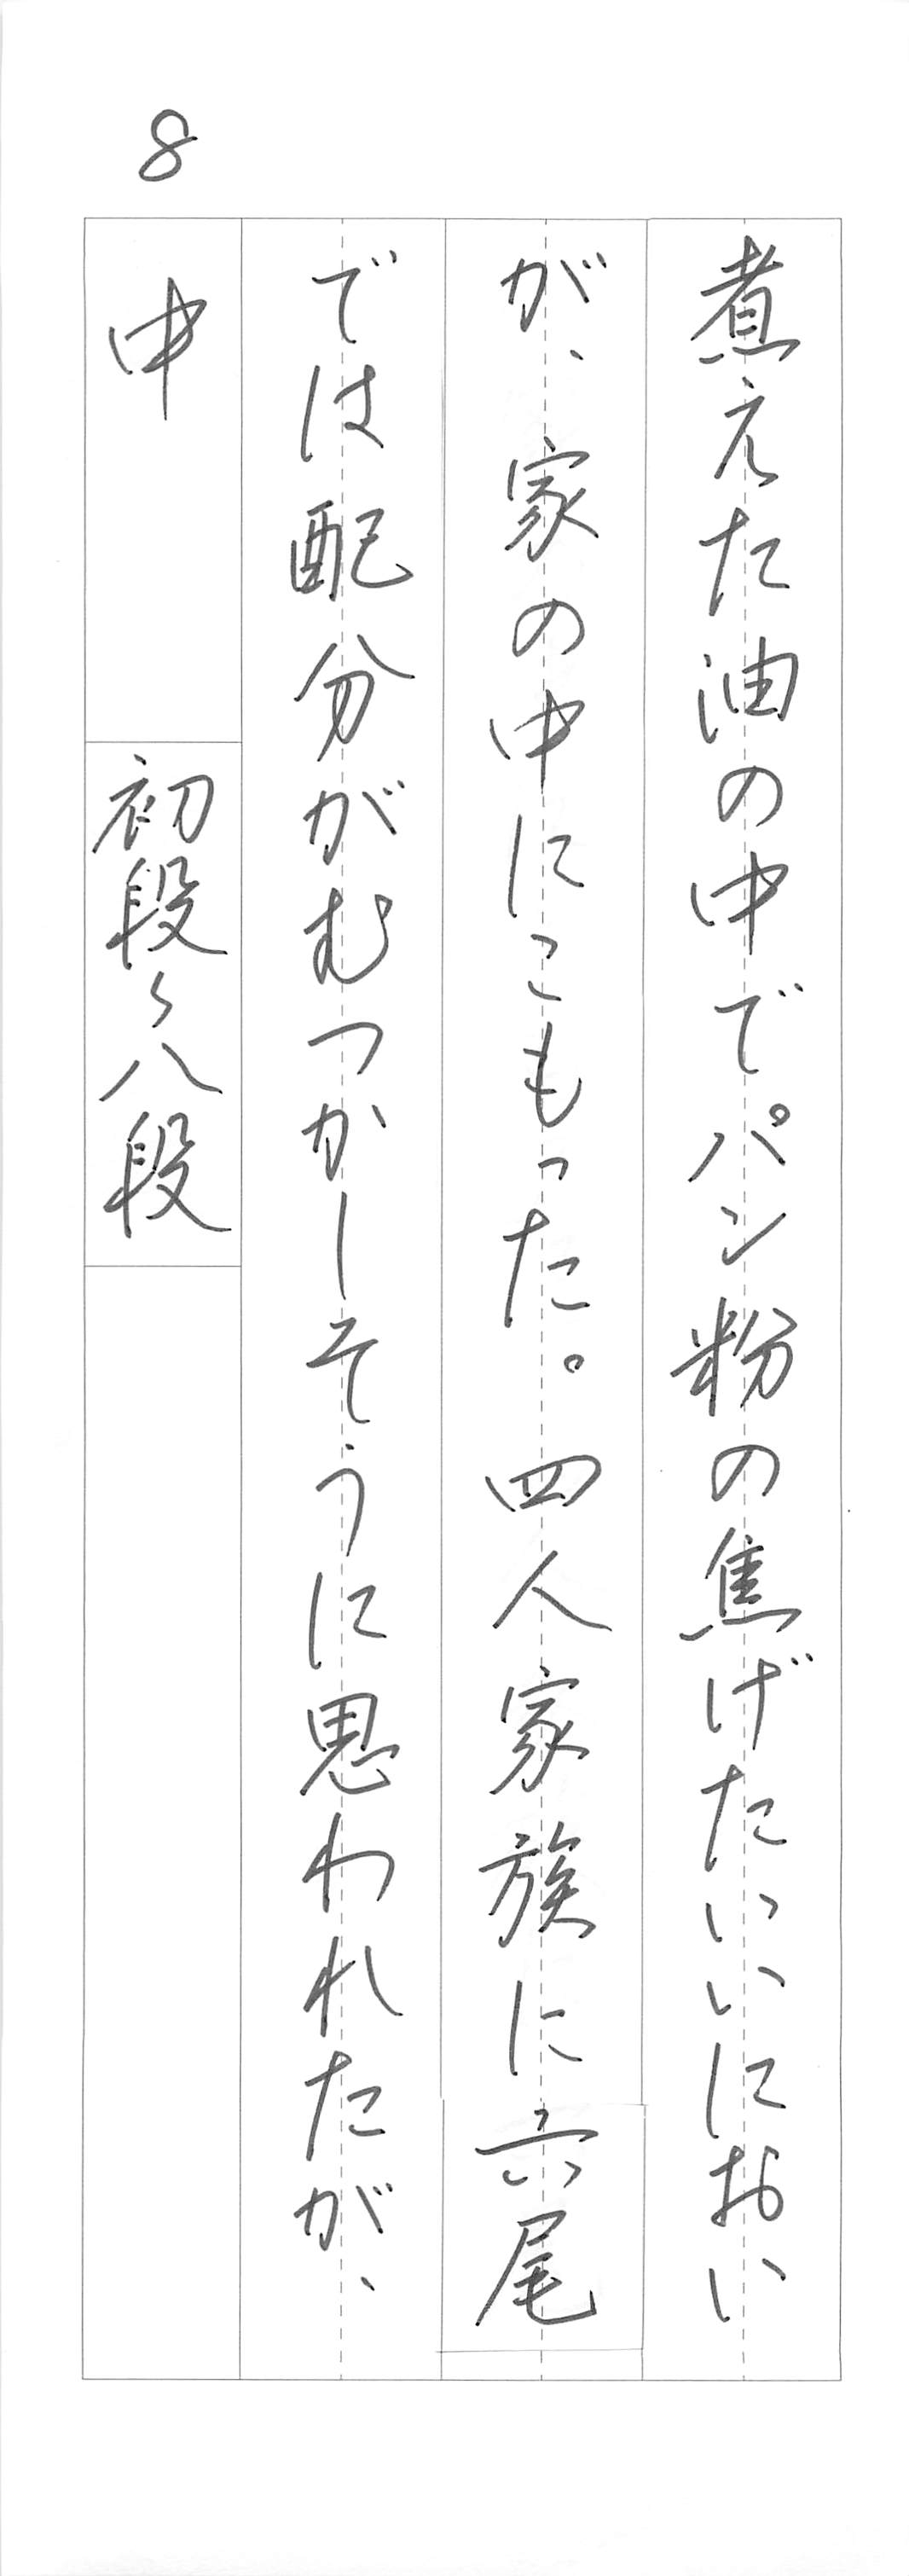 煮えた油の中でパン粉の焦げたいいにおい
が、家の中にこもった。四人家族に六尾
では配分がむつかしそうに思われたが、
8
中
初段〜八段